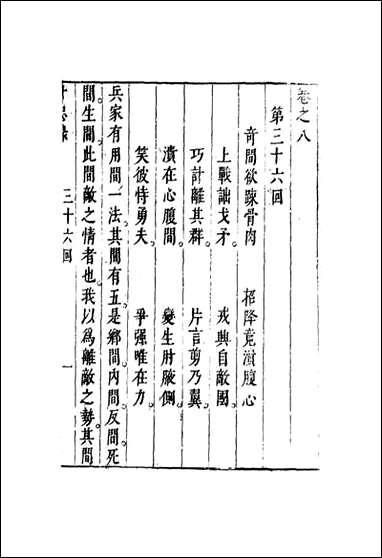 卷之八
第三十六回
奇間欲踈骨肉 招降竟潰腹心
上戰詘戈矛。 戎興自敵國。
巧計離其群。 片言剪乃翼。
潰在心腹間。 變生肘腋側。
笑彼恃勇夫。 爭强唯在力。
兵家有用間一法。其間有五。是鄉間。内間。反間。死
間。生間。此間敵之情者也。我以為離敵之勢。其間
三十六回 一